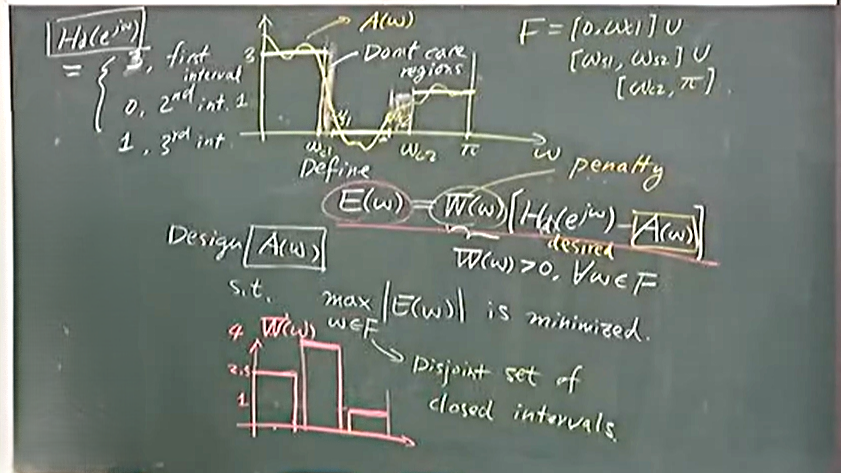 Hd(e^jω)
= { 3, first interval
0, 2nd int.
1, 3rd int.
A(ω)
3
Don't care regions
1
ωc1
ωc2
π
ω
F = [0, ωc1] ∪
[ωs1, ωs2] ∪
[ωc2, π].
Define
penalty
E(ω) = W(ω)[Hd(e^jω) - A(ω)]
desired
W(ω) > 0, ∀ω ∈ F
Design A(ω)
s.t. max |E(ω)| is minimized.
ω∈F
Disjoint set of
closed intervals.
W(ω)
4
2.5
1